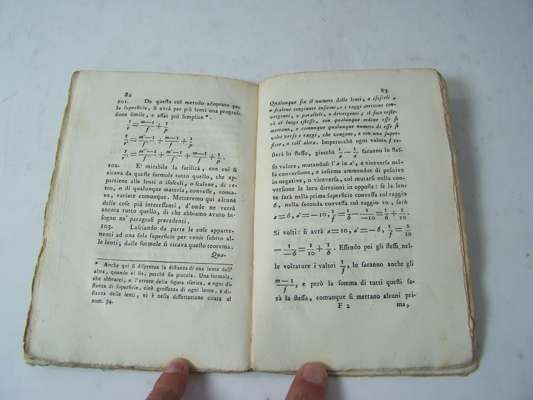 82
201. Da questa col metodo adoprato per
le superficie, si avrà per più lenti una progres-
sione simile, e assai più semplice *.
202. E' mirabile la facilità, con cui si
ricava da queste formole tutto quello, che ap-
partiene alle lenti o isosceli, o scalene, di ve-
tro, o di qualunque materia, convesse, conca-
ve, variate comunque. Metteremo qui alcune
delle cose più interessanti, d'onde ne verrà
ancora tutto quello, di che abbiamo avuto bi-
sogno ne' paragrafi precedenti.
203. Lasciando da parte le cose apparte-
nenti ad una sola superficie per venir subito al-
le lenti, dalle formole si ricava questo teorema.
Qua-
* Anche qui si disprezza la distanza di una lente dall'
altra, quando vi sia, purchè sia piccola. Una formola,
che abbracci, e l'errore della figura sferica, e ogni di-
stanza di superficie, cioè grossezza di ogni lente, e di-
stanza delle lenti, vi è nella dissertazione citata al
num. 74.
83
Qualunque sia il numero delle lenti, o isosceli,
o scalene congiunte insieme, e i raggi arrivino con-
vergenti, o paralleli, o divergenti; il fuoco rest-
rà al luogo istesso, con qualunque ordine esse si
mettano, e comunque qualunque numero di esse si
volti verso i raggi, che vengono, o con una super-
ficie, o coll'altra. Imperocchè ogni valore f re-
sterà lo stesso, giacchè 1/a − 1/a' faranno lo stes-
so valore, mutandosi l'a in a', e viceversa nel-
la conversione, e insieme ammendue di positive
in negativa, o viceversa, col mutarsi nella con-
versione le loro direzioni in opposte: se la len-
te sarà nella prima superficie convessa sul raggio
6, nella seconda convessa sul raggio 10, avrà
a = 6, a' = -10, 1/f = 1/6 + 1/10.
Si volti: si avrà a = 10, a' = -6, 1/f =
1/10 + 1/6. Essendo poi gli stessi, nel-
le voltature i valori 1/f, lo saranno anche gli
m-1/f, e però la somma di tutti questi sa-
rà la stessa, comunque si mettano alcuni pri-
F 2 ma,